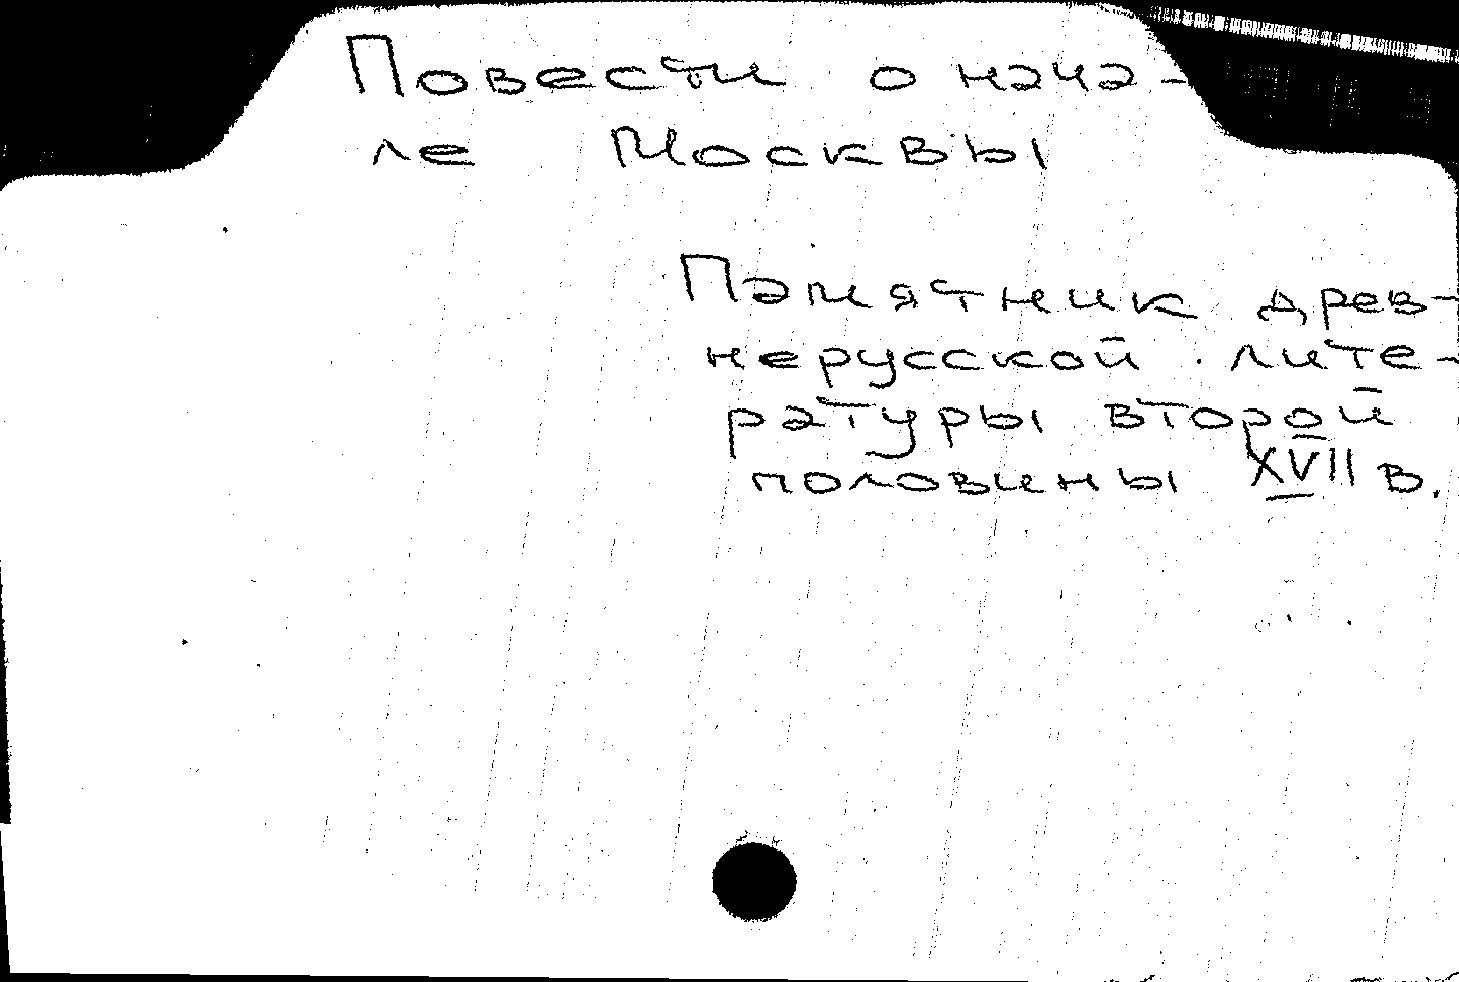 Повести о нача-
ле Москвы
Памятник древ-
нерусской лите-
ратуры второй
половины XVII в.